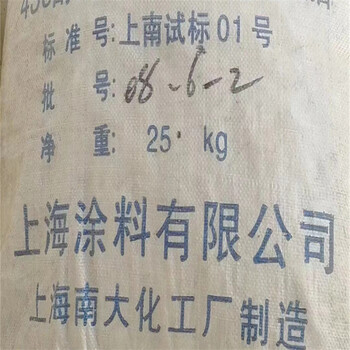 标准号:上南试标01号
批号:08-6-2
净重:25 kg
上海涂料有限公司
上海南大化工厂制造